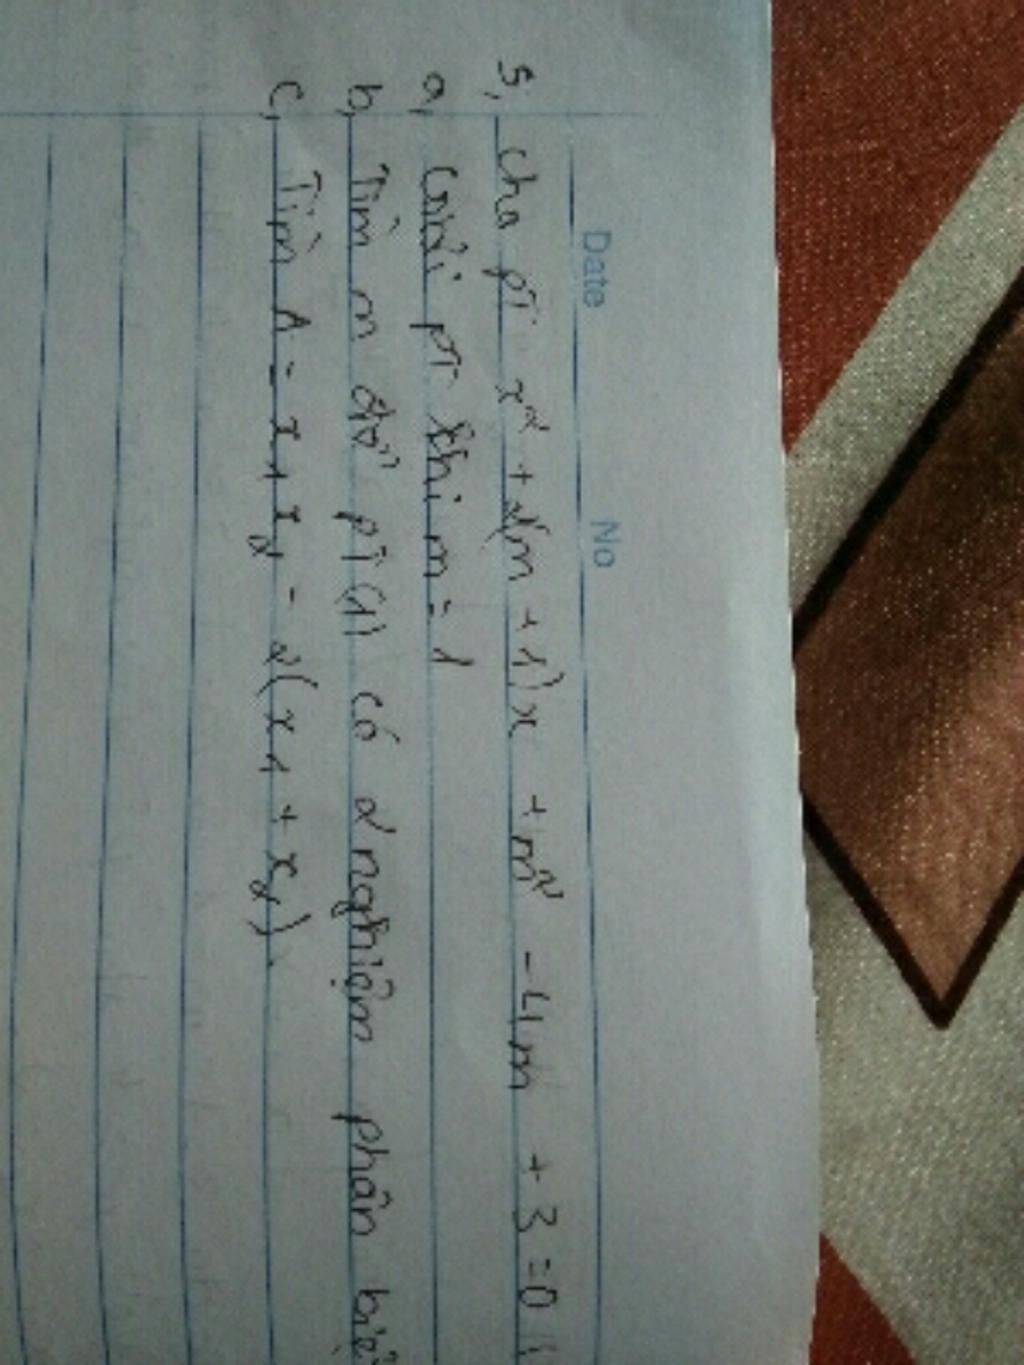 Date No
5, cho pT x² + 2(m + 1)x + m² - 4m + 3 = 0 (
a, Giải pT khi m = 1
b, Tìm m để pT (1) có 2 nghiệm phân biệ
c, Tìm A = x₁ + x₂ - 2(x₁ + x₂).